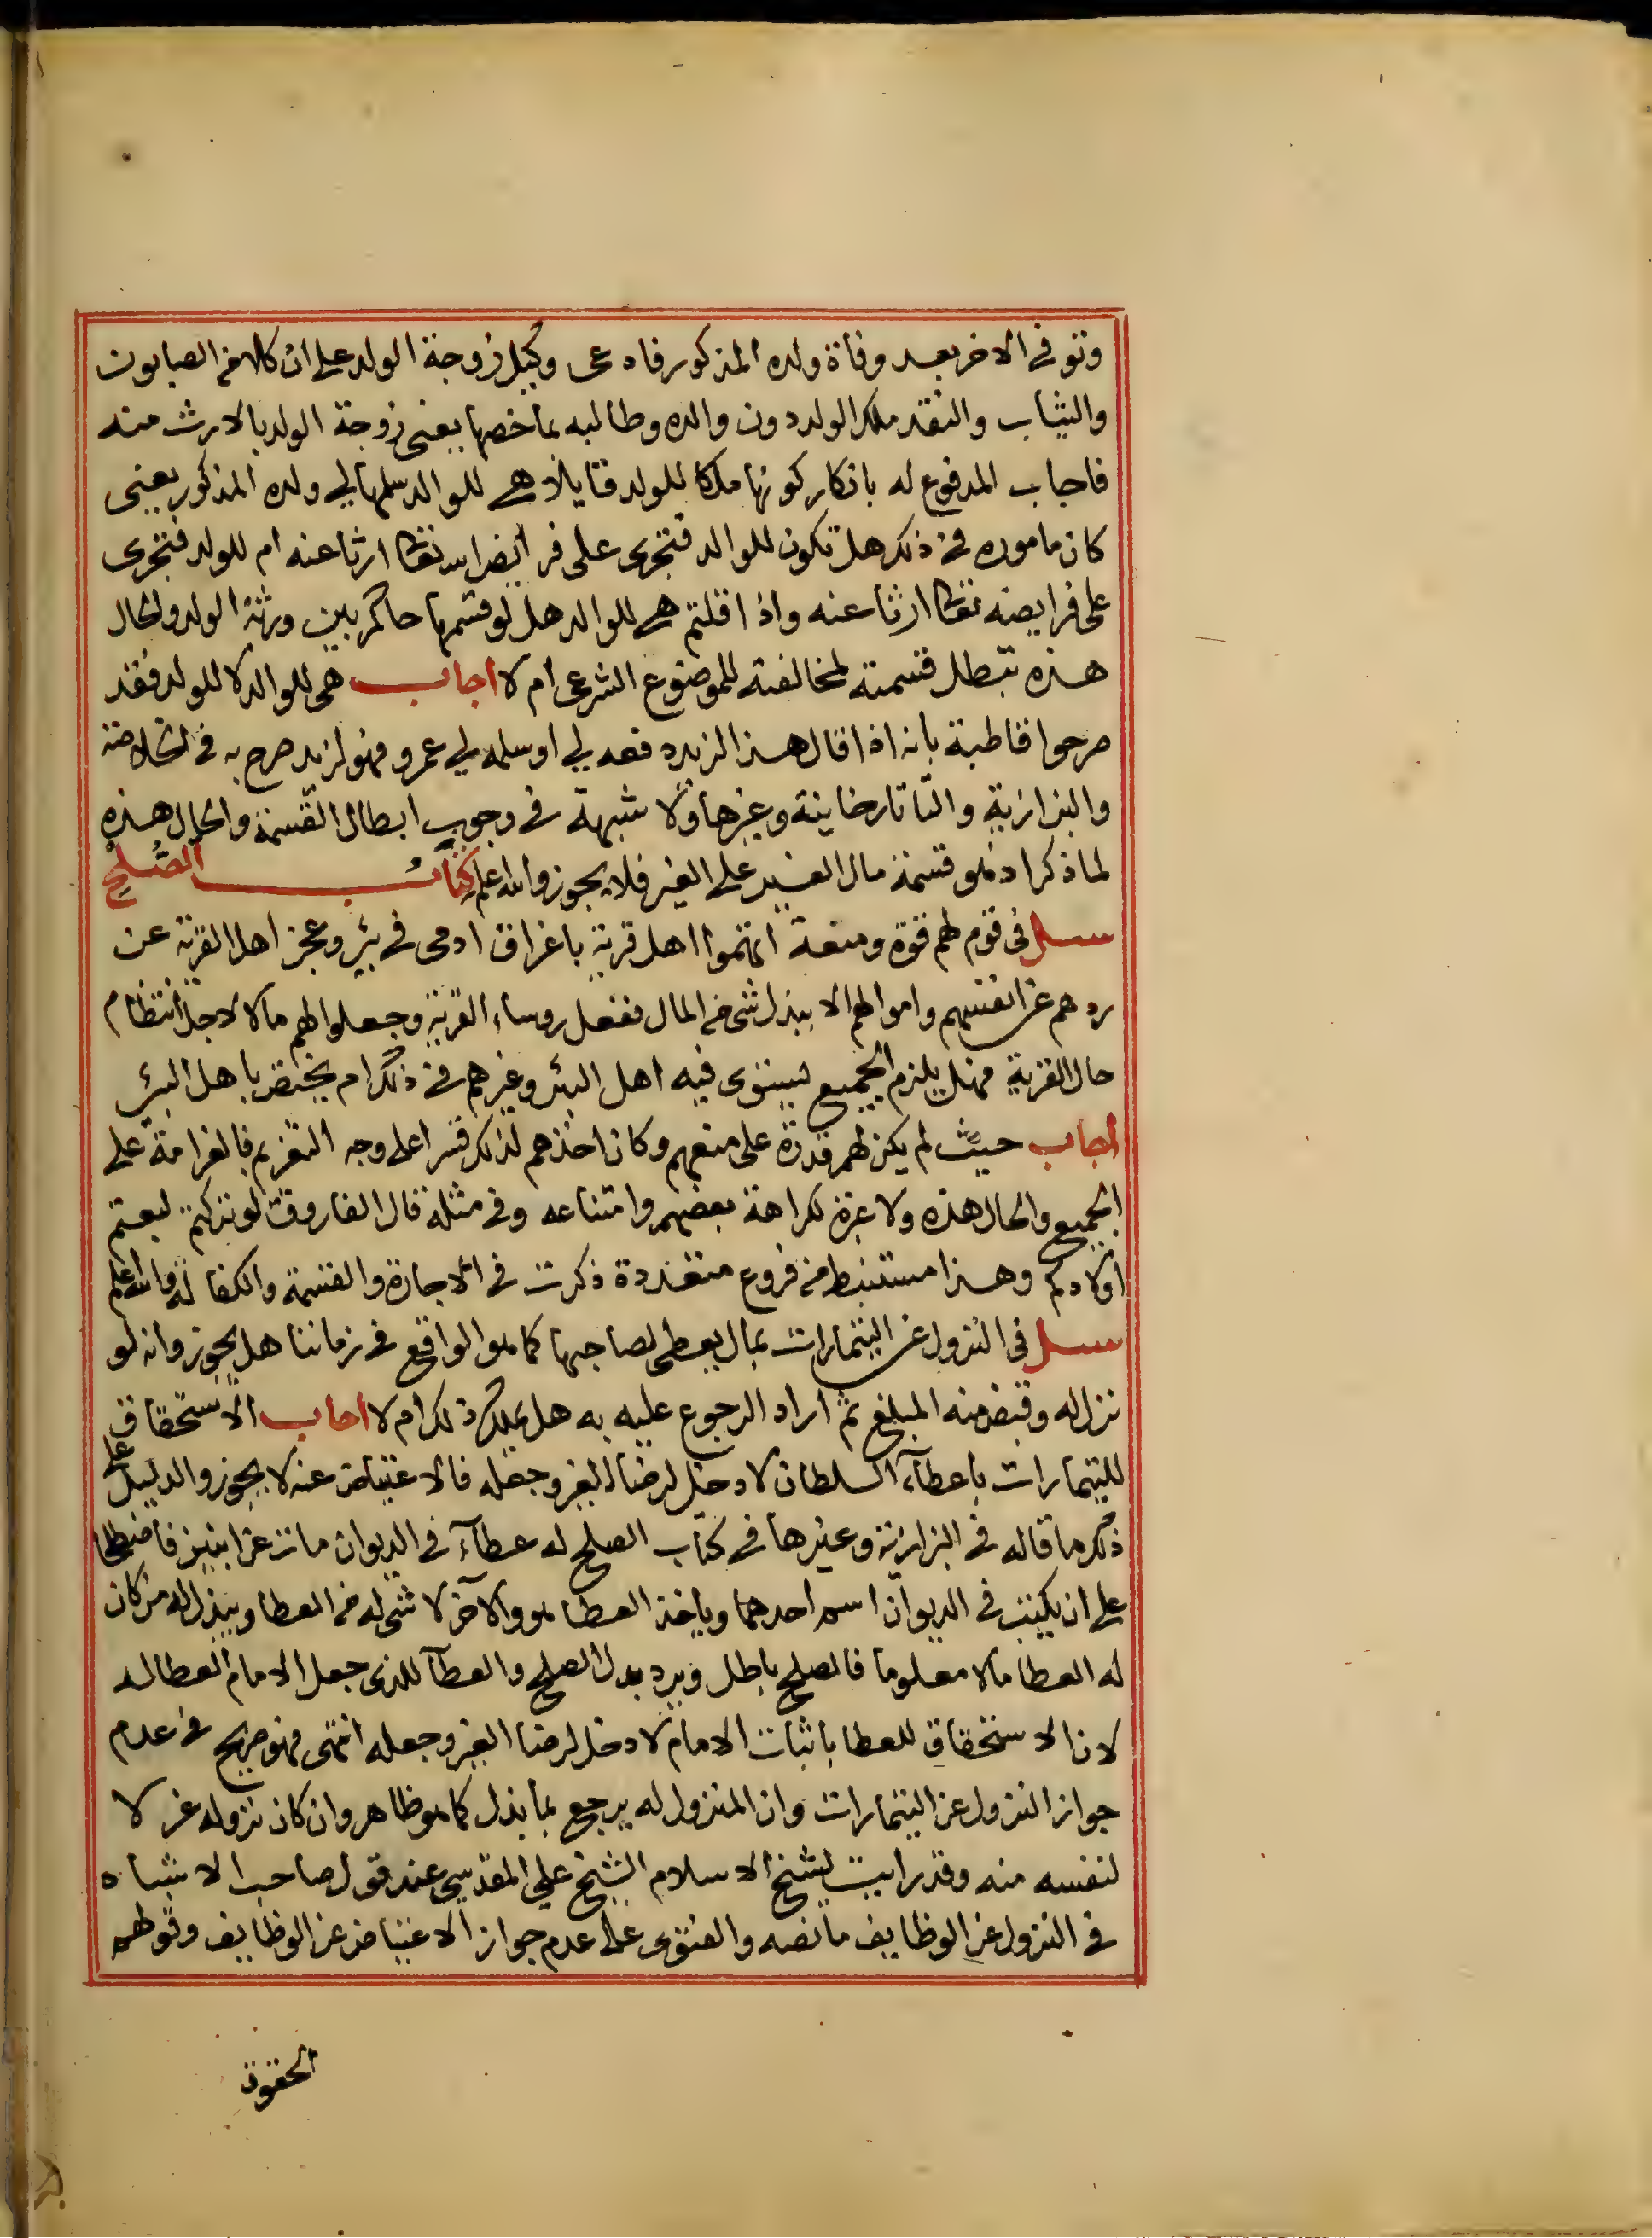 وتوفي الاخر بعد وفاة ولده المذكور فادعى وكيل زوجة الولد على ان كلا من الصابون
والثياب والنقد ملك الولد دون والده وطالبه بما خصها يعنى زوجة الولد بالارث منه
فاجاب المدفوع له بانكار كونها ملكا للولد قايلا هي للوالد سلمها لي ولده المذكور يعنى
كان ماموره في ذلك هل تكون للوالد فتجرى على فرايض الله تعالى ارثا عنه ام للولد فتجرى
على فرايضه تعالى ارثا عنه واذا قلتم هي للوالد هل لو قسمها حاكم بين ورثة الولد والحال
هذه تبطل قسمته لمخالفته للموضوع الشرعى ام لا اجاب هى للوالد لا للولد فقد
صرحوا قاطبة بانه اذا قال هذا لزيد دفعه لي او سلمه لي عمرو فهو لزيد صرح به في الخلاصة
والبزازية والتاتارخانية وغيرها ولا شبهة في وجوب ابطال القسمة والحال هذه
لما ذكر اذ هو قسمة مال الغير على الغير فلا يجوز والله اعلم كتاب الصلح
سئل في قوم لهم قوة ومنعة اتهموا اهل قرية باغراق ادمى في بئر وعجز اهل القرية عن
ردهم عن انفسهم واموالهم الا ببذل شئ من المال ففعل روساء القرية وجعلوا لهم مالا لاجل انتظام
حال القرية فهل يلزم الجميع ليستوى فيه اهل البئر وغيرهم في ذلك ام يختص باهل البئر
اجاب حيث لم يكن لهم قدرة على منعهم وكان اخذهم لذلك قسرا على وجه التغريم فالغرامة على
الجميع والحال هذه ولا عبرة لكراهة بعضهم وامتناعه وفي مثله قال الفاروق لو تركتم لبعتم
اولادكم وهذا مستنبط من فروع متعددة ذكرت في الاجارة والقسمة والكفالة والله اعلم
سئل في النزول عن التيمارات بمال يعطى لصاحبها كما هو الواقع في زماننا هل يجوز وانه لو
نزل له وقبض منه المبلغ ثم اراد الرجوع عليه به هل يملك ذلك ام لا اجاب الاستحقاق
للتيمارات باعطاء السلطان لا دخل لرضاء الغير وجعله فالاعتياض عنه لا يجوز والدليل على
ذلك ما قاله في البزازية وغيرها في كتاب الصلح له عطاء في الديوان مات عن ابنين فاصطلحا
على ان يكتب في الديوان اسم احدهما وياخذ العطا هو والآخر لا شئ له من العطا ويبذل له من كان
له العطا مالا معلوما فالصلح باطل ويرد بدل الصلح والعطا للذى جعل الامام العطا له
لان الاستحقاق للعطا باثبات الامام لا دخل لرضا الغير وجعله انتهى فهو صريح في عدم
جواز النزول عن التيمارات وان المنزول له يرجع بما بذل كما هو ظاهر وان كان نزوله عزلا
لنفسه منه وقد رايت لشيخ الاسلام الشيخ علي المقدسي عند قول صاحب الاشباه
في النزول عن الوظايف ما نصه والفتوى على عدم جواز الاعتياض عن الوظايف وقولهم
الحقوق